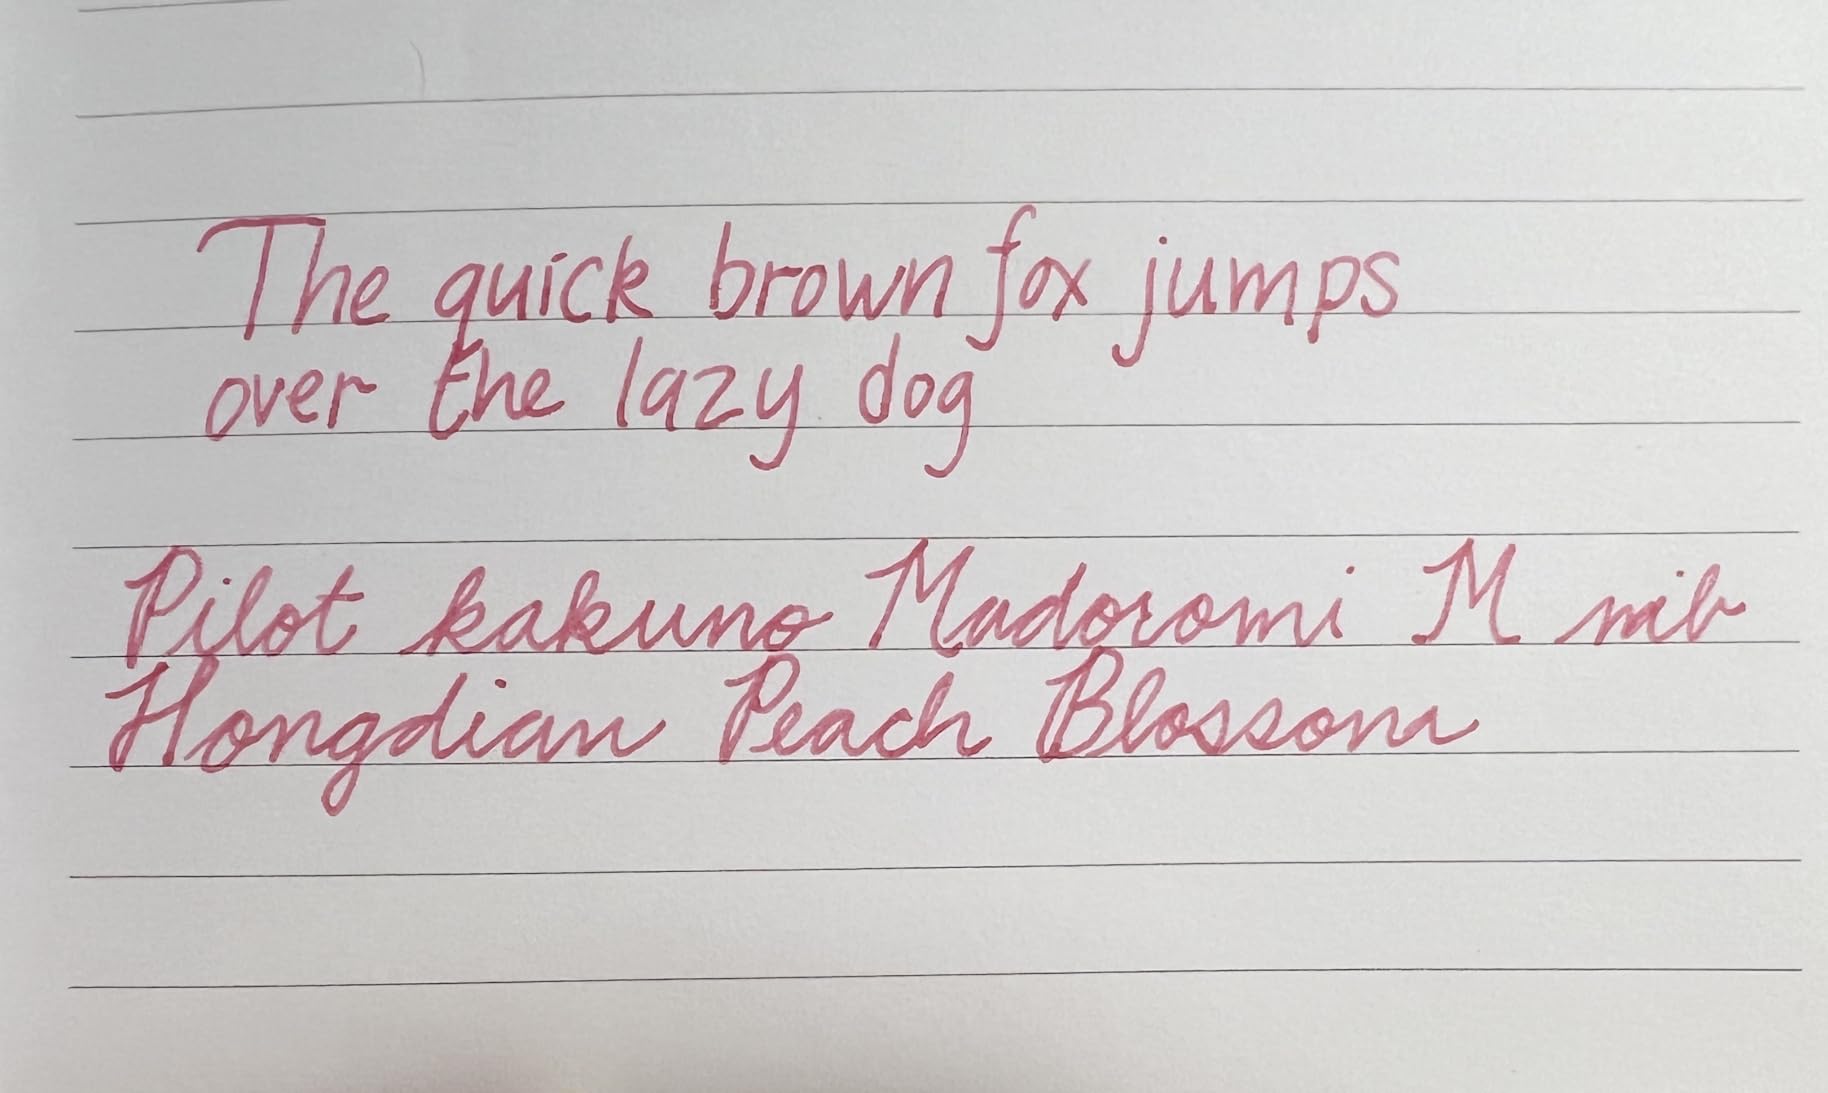 The quick brown fox jumps
over the lazy dog
Pilot kakuno Madoromi M nib
Hongdian Peach Blossom